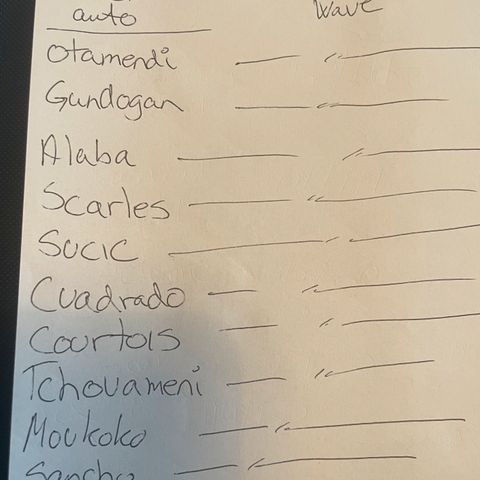 auto Wave
Otamendi
Gundogan
Alaba
Scarles
Sucic
Cuadrado
Courtois
Tchouameni
Moukoko
Sancho